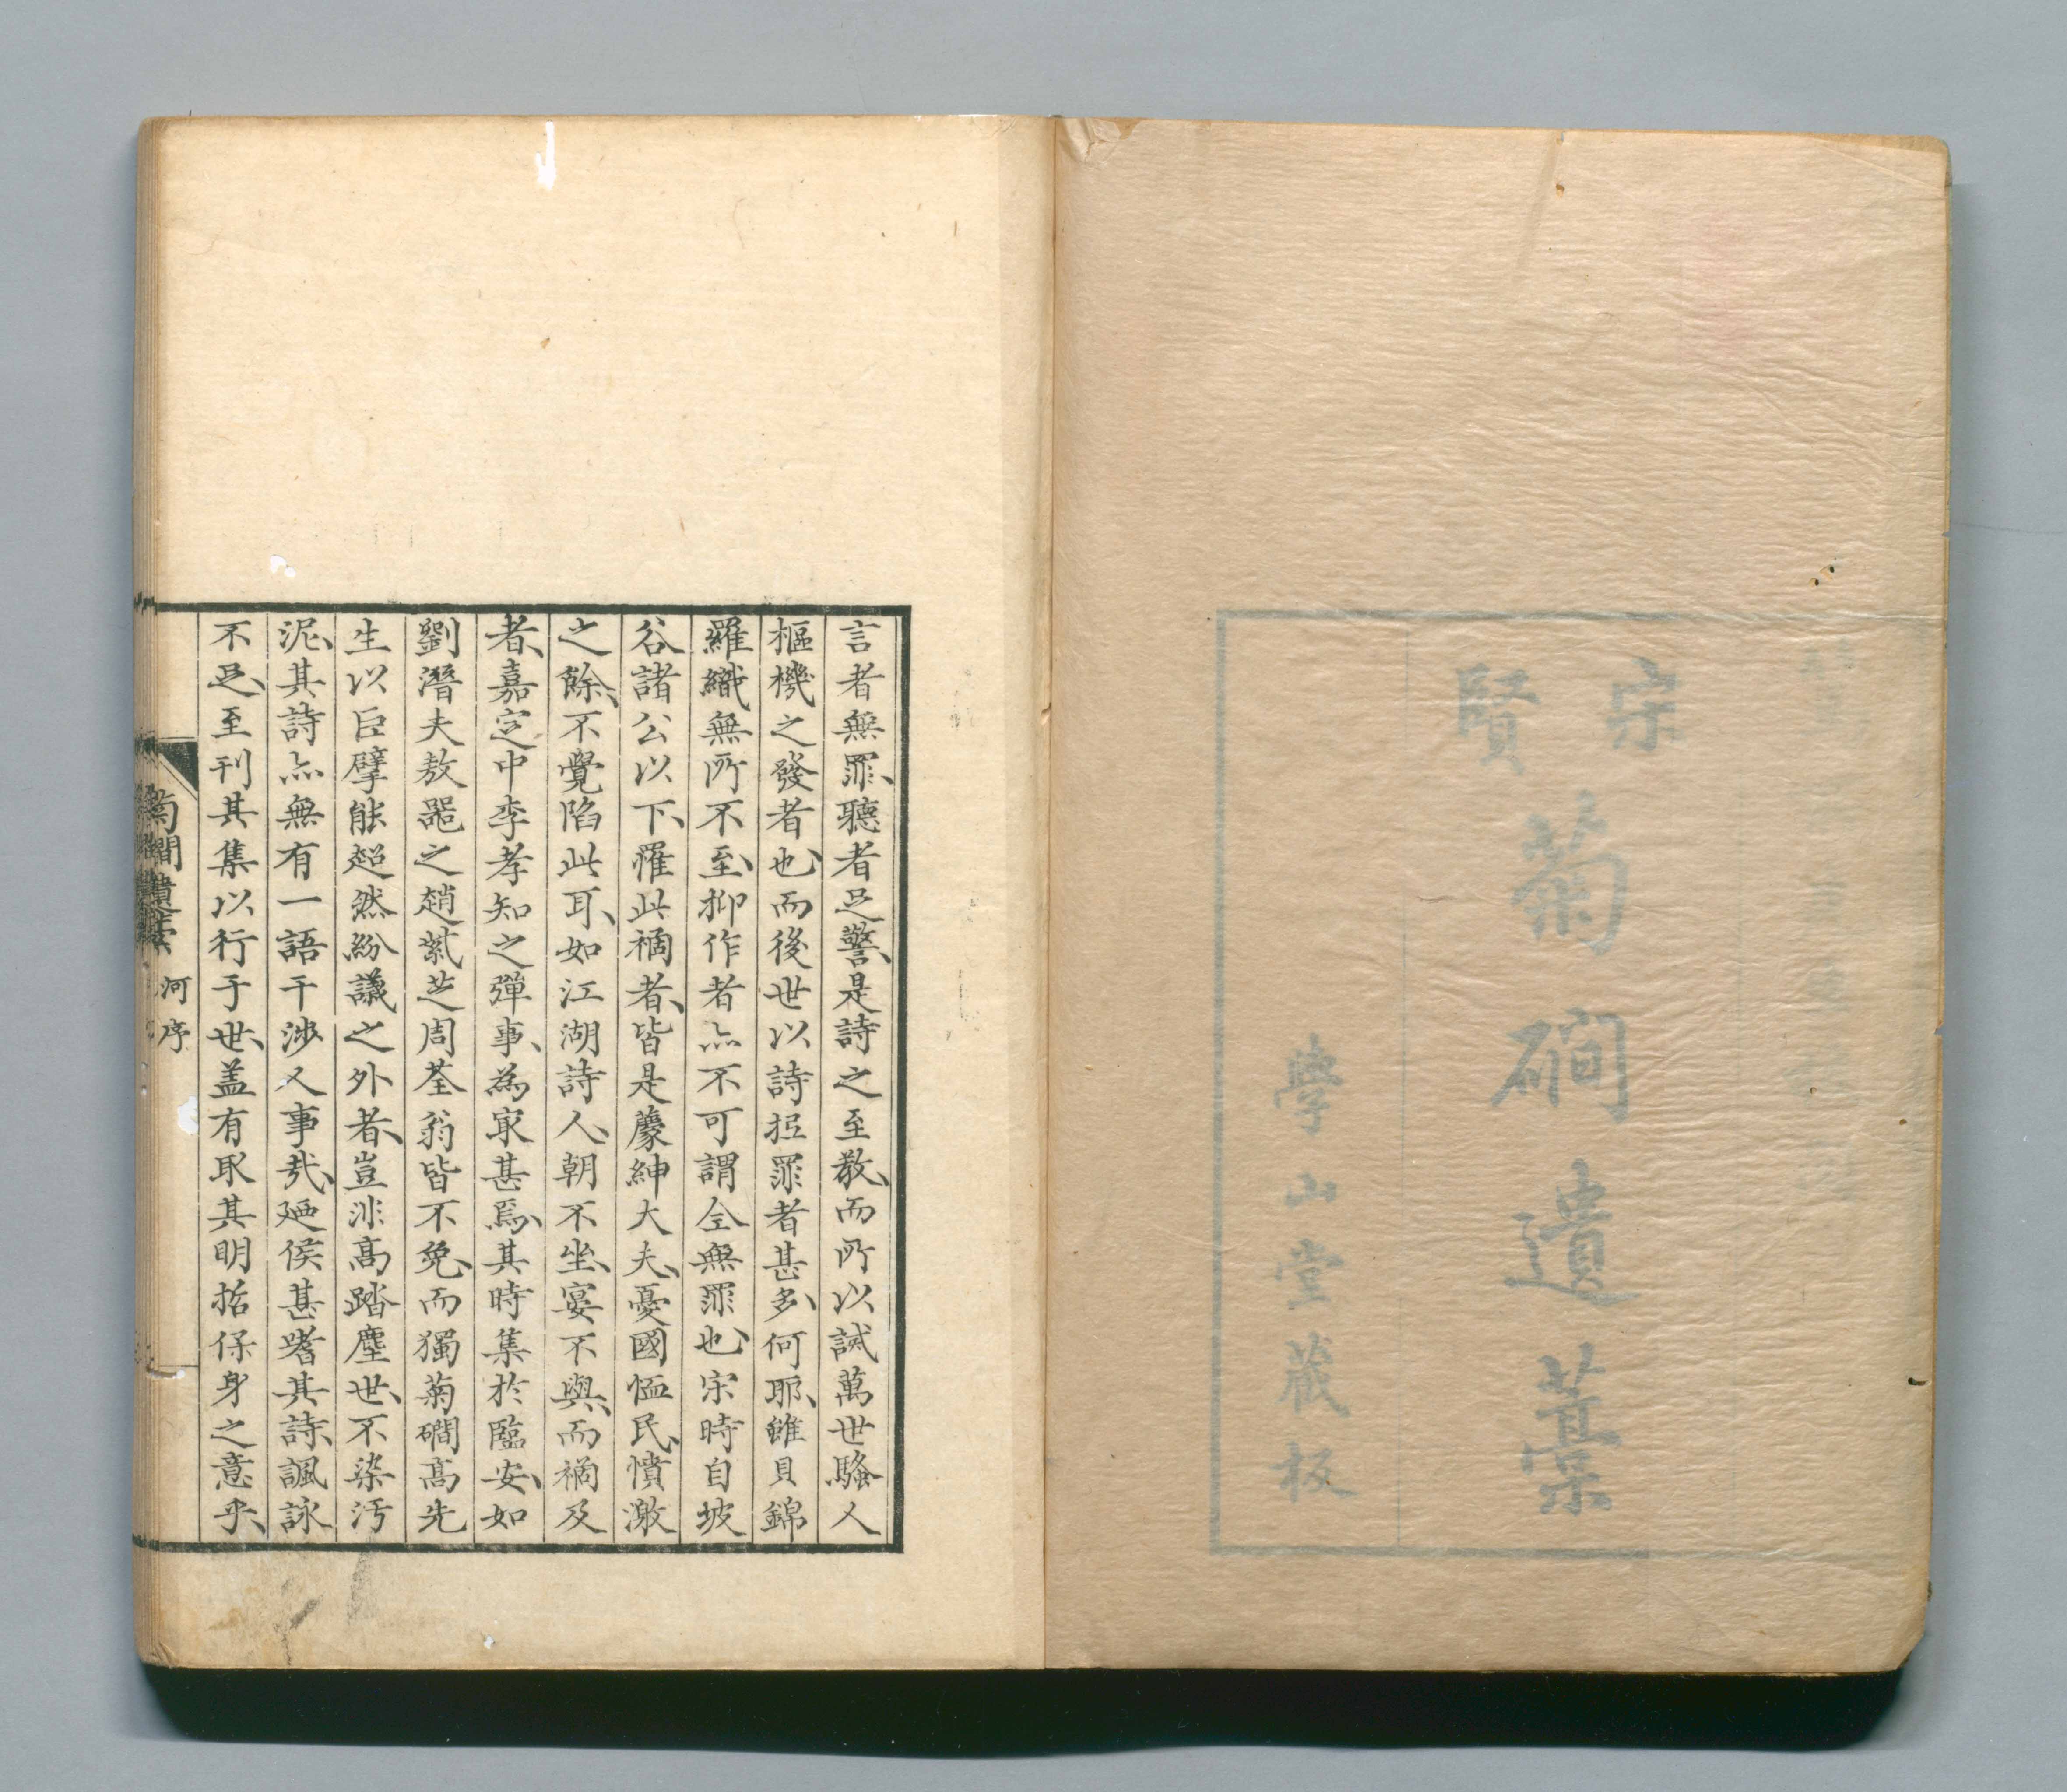 宋
賢
菊磵遺藁
學山堂藏板
言者無罪、聽者足警、是詩之至教、而所以誡萬世騷人
樞機之發者也、而後世以詩抵罪者甚多、何耶、雖貝錦
羅織無所不至、抑作者亦不可謂全無罪也、宋時自坡
谷諸公以下、罹此禍者、皆是薦紳大夫、憂國恤民、憤激
之餘、不覺陷此耳、如江湖詩人、朝不坐、宴不與、而禍及
者、嘉定中李孝知之彈事、為最甚焉、其時集於臨安、如
劉潛夫敖器之趙紫芝周荃翁皆不免、而獨菊磵高先
生以巨擘能超然紛議之外者、豈非高踏塵世、不染汚
泥、其詩亦無有一語干涉人事哉、廼侯甚嗜其詩、諷詠
不足、至刊其集以行于世、盖有取其明哲保身之意乎、
菊磵遺藁 河序